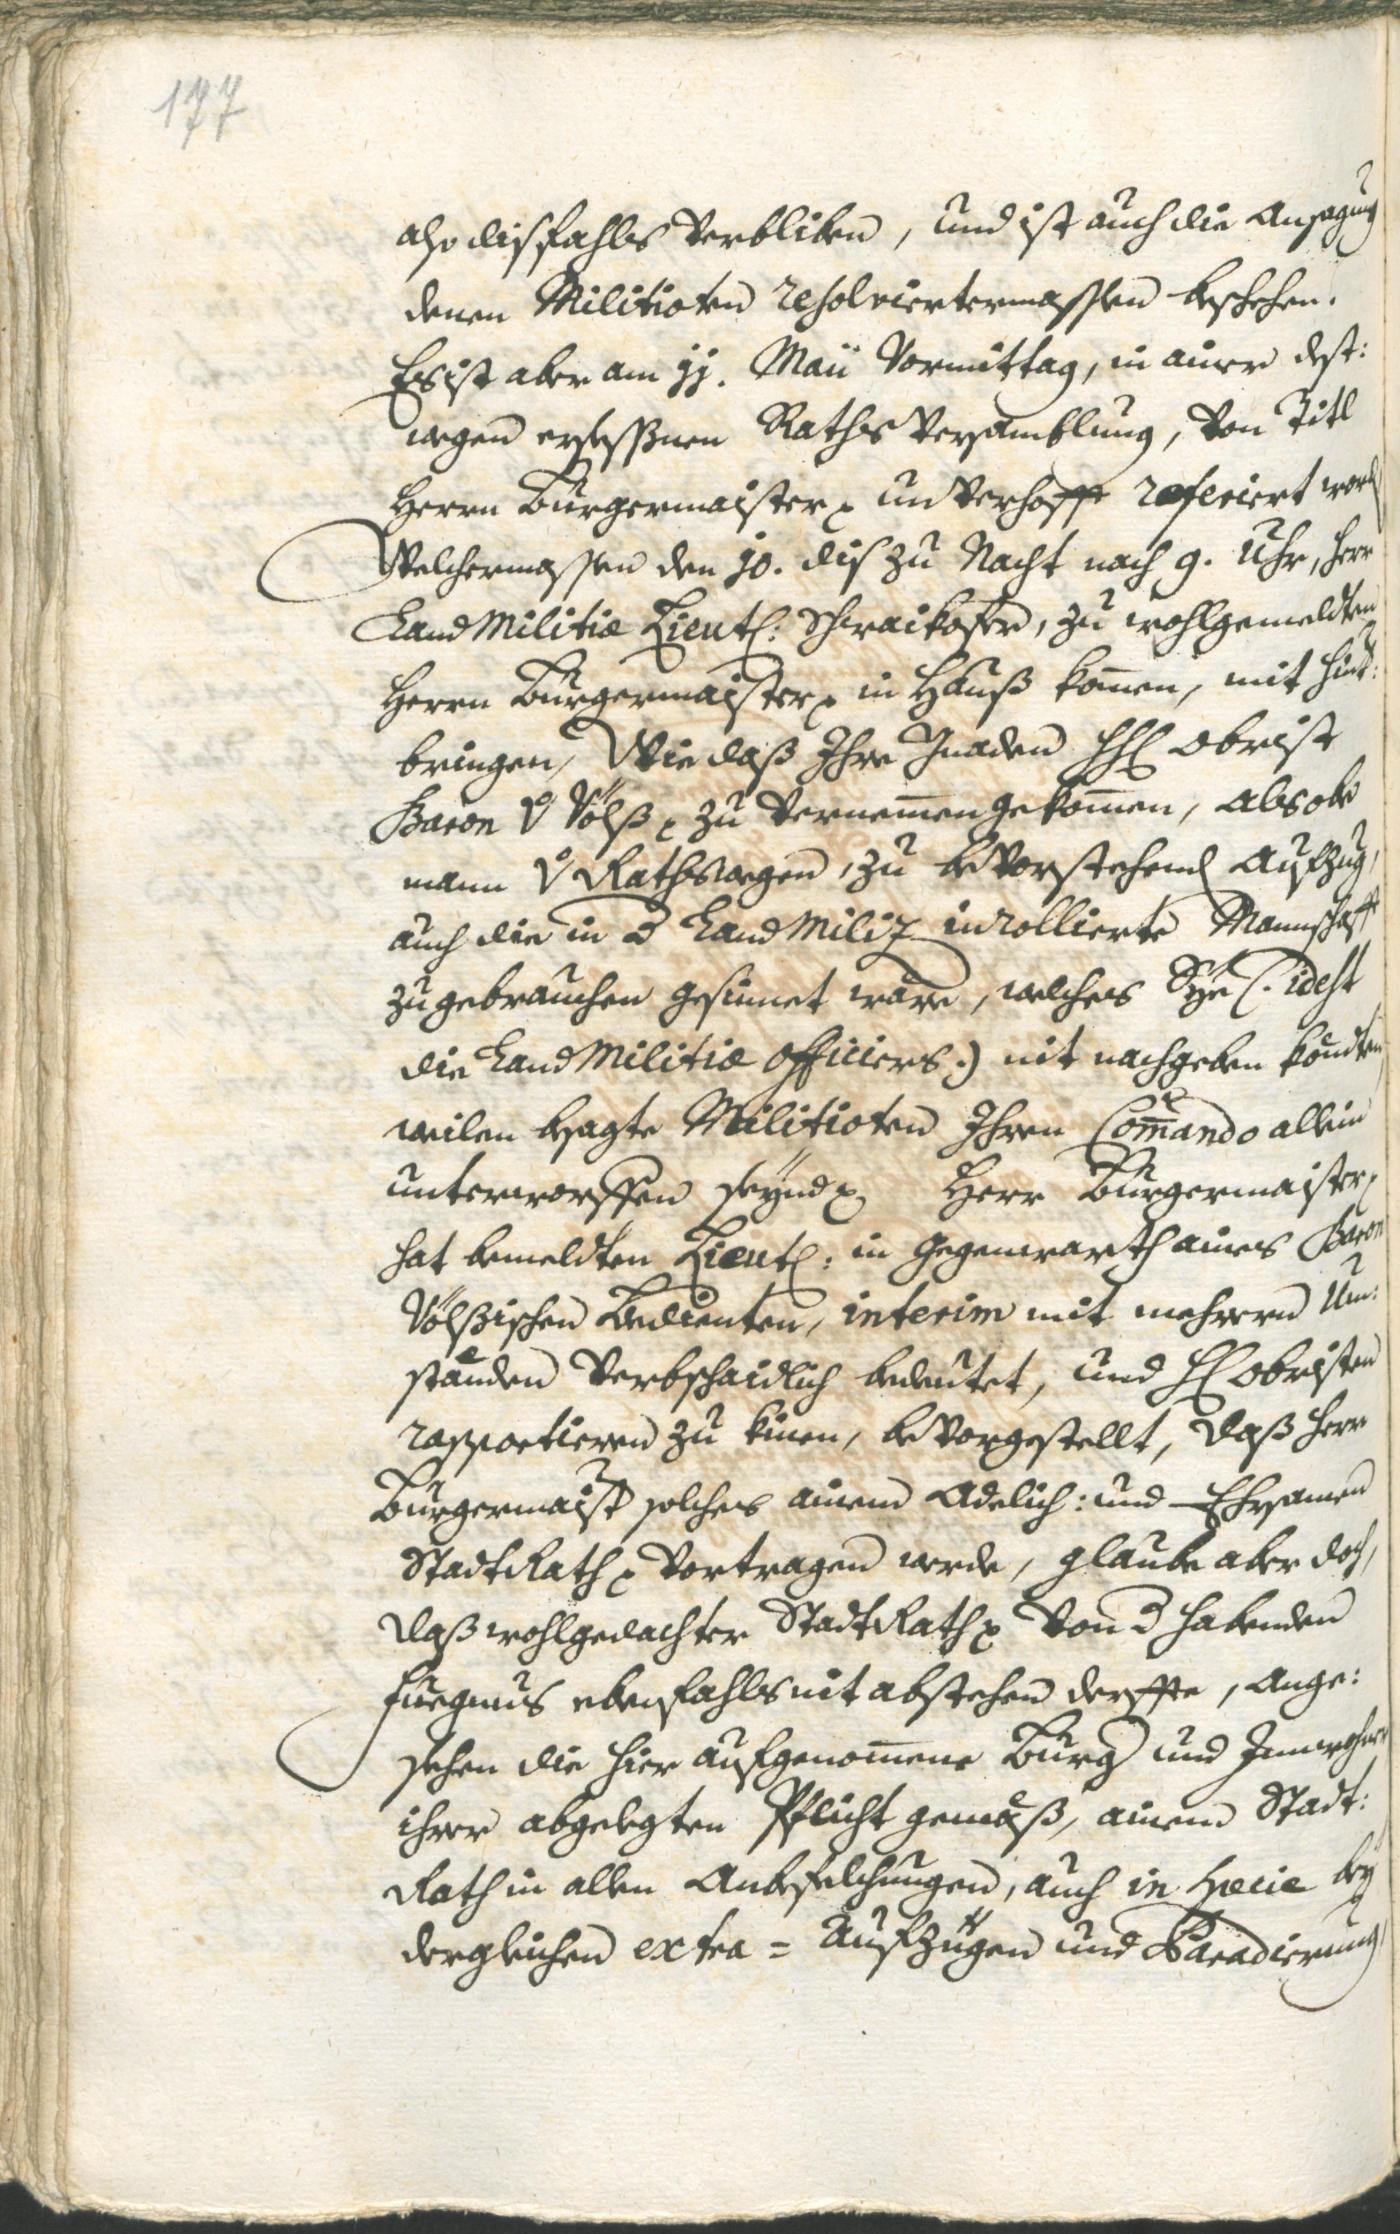 177
also disfahls verbliben, und ist auch die Ansagung
denen Militioten resolviertermassen beschehen.
Es ist aber am 11. Maii Vormittag, in ainer dest:
wegen ersessnen Raths Versamblung, von Titl
Herrn Burgermaister unverhofft referiert word
Welchermassen den 10. dis zu Nacht nach 9. Uhr, Herr
Land Militiæ Lieut: Schraikofer, zu wohlgemeldten
Herrn Burgermaister in Hauß komen, mit hint:
bringen, Wie daß Ihre Gnaden HH obrist
Baron v Völß zu vernemen gekomen, als ob
mann v Rathswegen, zu bevorstehend Aufzug,
auch die in d Land Miliz inrollierte Mannschafft
zu gebrauchen gesinnet wäre, welches Sye (: idest
die Land Militiæ officiers :) nit nachgeben köndten
weilen besagte Militioten Ihren Comando allein
unterworffen seynd Herr Burgermaister
hat bemeldten Lieut: in Gegenwarth aines Baron
Völßischen Bedienten, interim mit mehrern Um:
ständen verbschaidlich bedeutet, und H obristen
rapportieren zu kinen, bevorgestellt, daß Herr
Burgermaist solches ainem Adelich: und Ehrsamen
StadtRath vortragen werde, glaube aber doch,
daß wohlgedachter StadtRath von d habenden
fuegnus ebenfahls nit abstehen derffte, Ange:
sehen die hier aufgenomene Burg und Innwohner
ihrer abgelegten Pflicht gemäß, ainem Stadt:
Rath in allen Anbefelchungen, auch in specie bey
dergleichen extra = Aufzügen und Paradierung